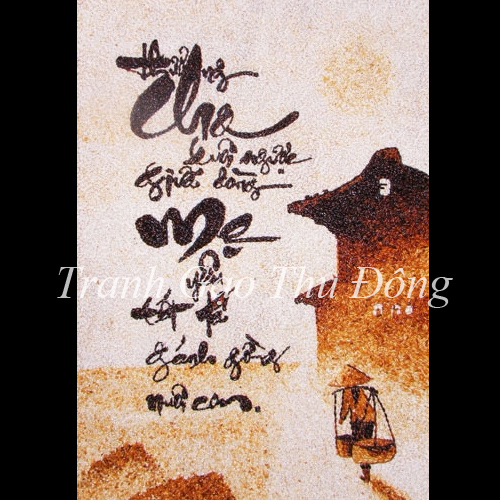 thương
Cha
xuôi ngược
giữa dòng
Mẹ
yêu
tất tả
gánh gồng
nuôi con.
Tranh Gạo Thu Đông